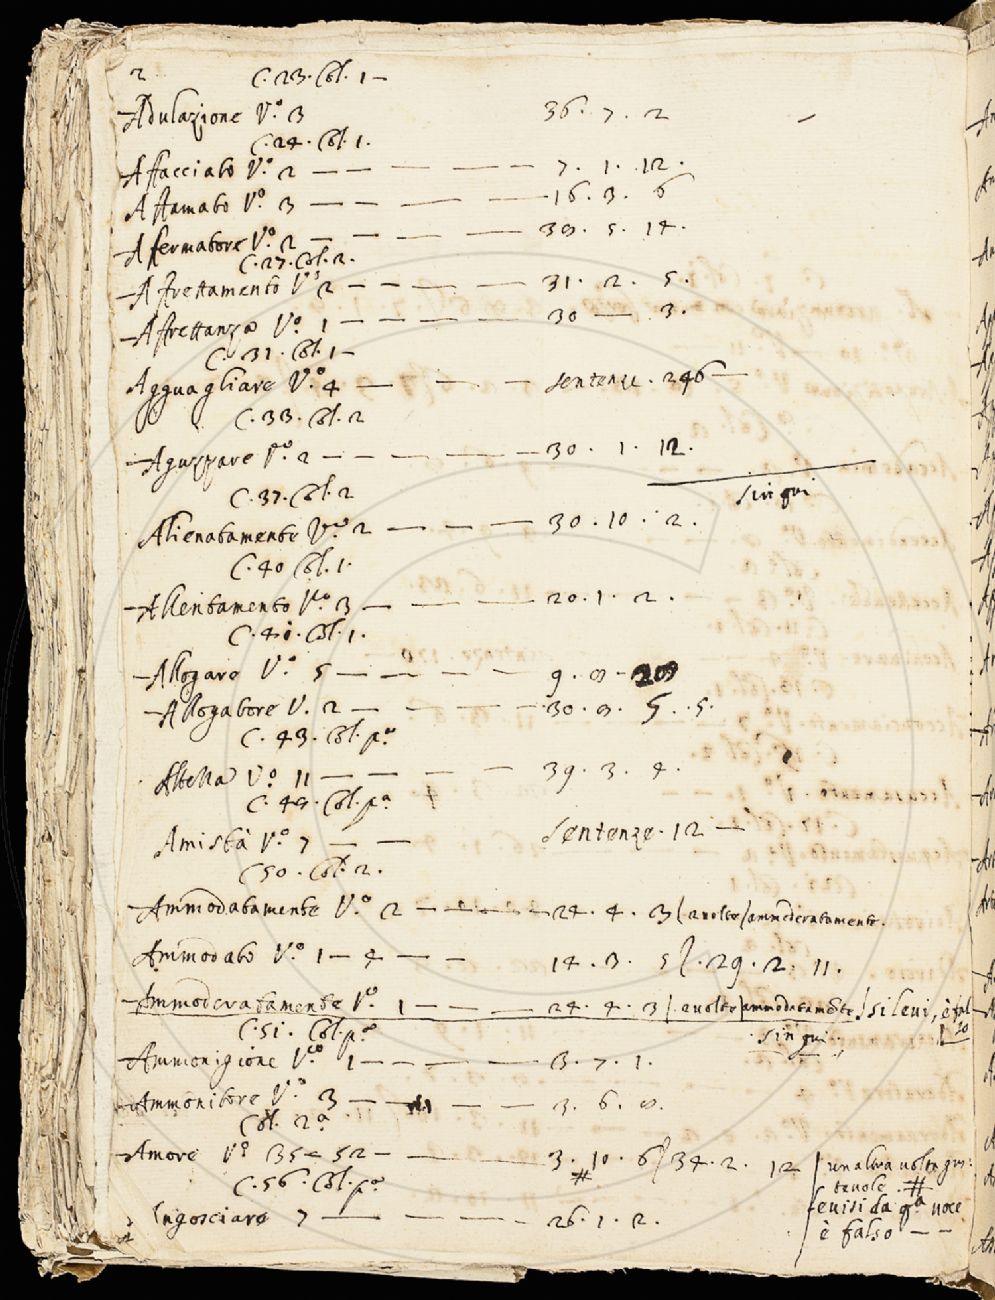 2 C. 23. Col. 1 —
Adulazione V.º 3 36. 7. 2
C. 24. Col. 1.
Affacciato V.º 2 — — — — — 7. 1. 12.
Affamato V.º 3 — — — — 16. 3. 6
Afermatore V.º 2 — — — — 38. 5. 14.
C. 27. Col. 2.
Affrettamento V.º 2 — — — — — 31. 2. 5.
Affrettanza V.º 1 — — — — — 30 — 3.
C. 31. Col. 1 —
Agguagliare V.º 4 — — — sentenze. 246 —
C. 33. Col. 2
Aguzzare V.º 2 — — — — — 30. 1. 12.
sin qui
C. 37. Col. 2
Alienatamente V.º 2 — — — — 30. 10. 2.
C. 40 Col. 1.
Allentamento V.º 3 — — — — 20. 1. 2.
C. 40. Col. 1.
Allogare V.º 5 — — — — 9. 8 -
Allogatore V. 2 — — — — 30. 8. 5. 5.
C. 43. Col. pª
V.º 11 — — — — 39. 3. 4.
C. 49. Col. pª
Amistà V.º 7 — — Sentenze. 12 —
C 50. Col. 2.
Ammodatamente V.º 2 — 24. 4. 3 (a volte) ammoderatamente.
Ammodato V.º 1 — 4 — — 14. 3. 5 ∫. 29. 2. 11.
Ammoderatamente V.º 1 — — — 24. 4. 3 (. a volte) ammodatamente / si levi, è falso
C. 51. Col. pª sin qui
Ammonizione V.º 1 — — — — 3. 7. 1.
Ammonitore V.º 3 — — — — 3. 6. 8.
Col. 2ª
Amore V.º 35 e 52 — — — 3. 10. 6 ∫ 34. 2. 12 un altra volta
# tavole. #
C. 56. Col. pª levisi da qª voce
Ingosciare 7 — — — — 26. 1. 2. è falso — —